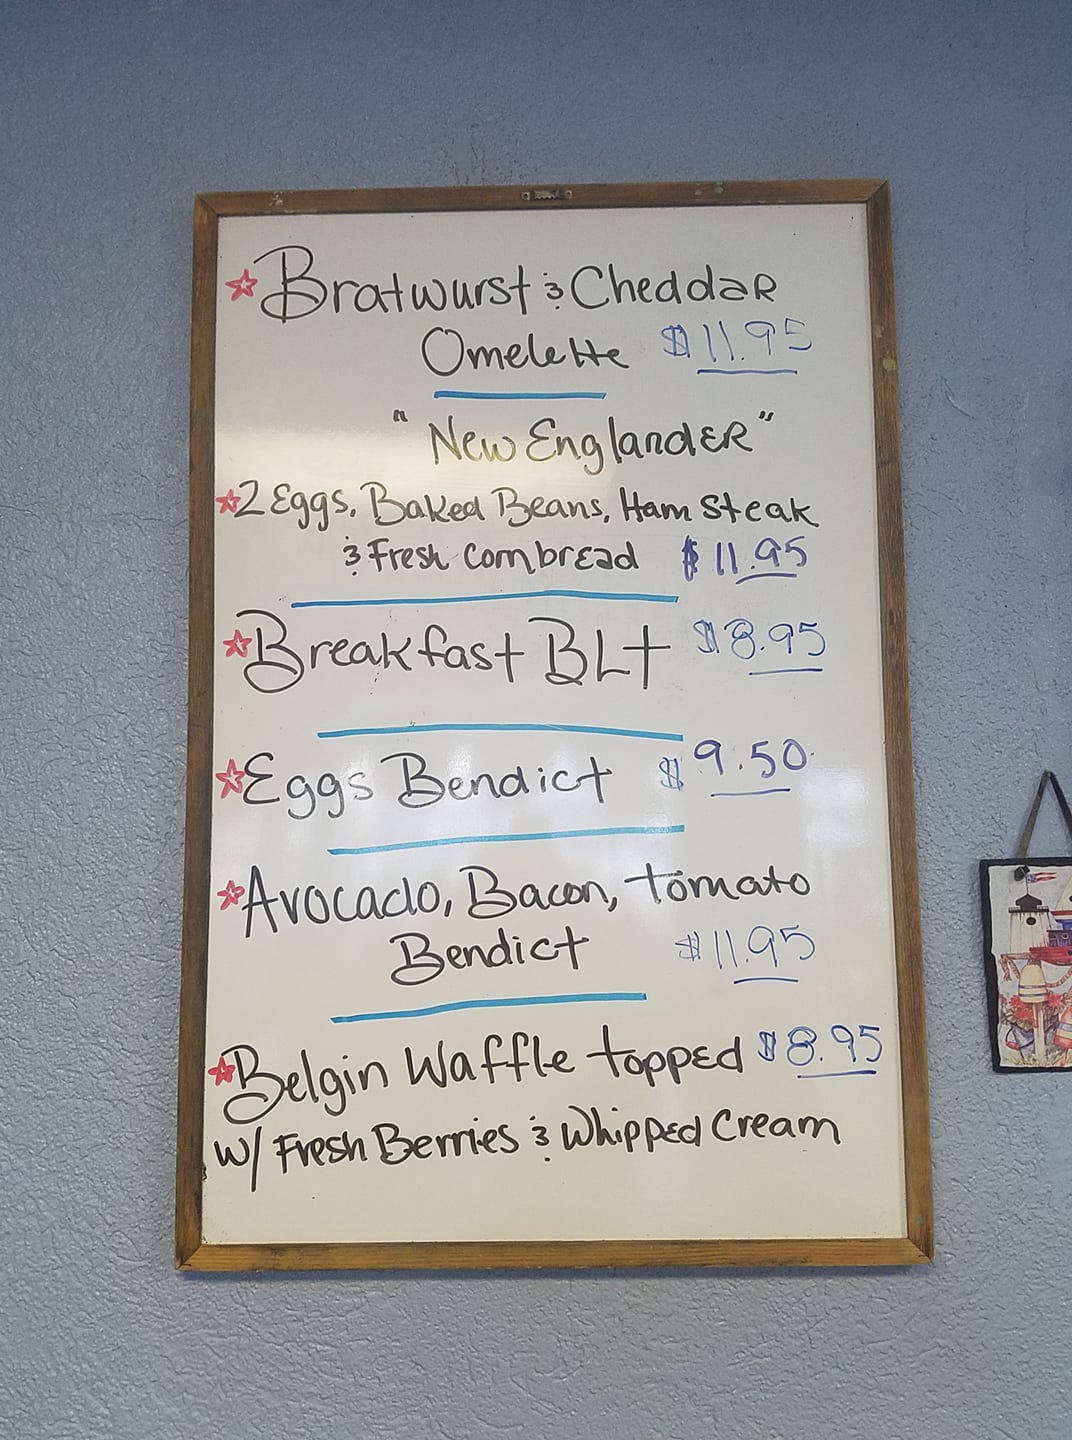 Bratwurst & Cheddar
Omelette $11.95
"New Englander"
2 Eggs, Baked Beans, Ham Steak
& Fresh Cornbread $11.95
Breakfast BLT $8.95
Eggs Bendict $9.50
Avocado, Bacon, Tomato
Bendict $11.95
Belgin Waffle topped $8.95
w/ Fresh Berries & Whipped Cream